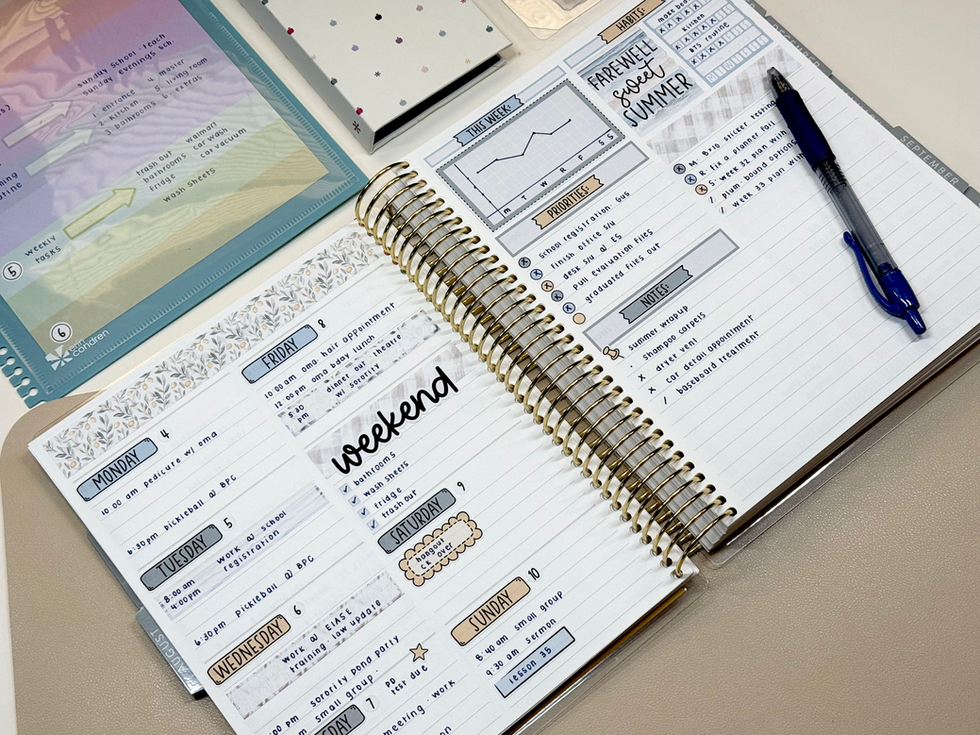 sunday school: teach
sunday evenings sch.
1. entrance 4. master
2. kitchen 5. living room
3. bathrooms 6. extras
trash out walmart
bathrooms car wash
fridge car vacuum
wash sheets
weekly
tasks
5
6
erin
condren
FRIDAY 8
10:00 am oma: hair appointment
12:00 pm oma bday lunch
5:30 dinner out theatre
pm w/ sorority
weekend
bathrooms
wash sheets
fridge
trash out
MONDAY 4
10:00 am pedicure w/ oma
6:30pm pickleball @ BPC
TUESDAY 5
8:00am work @ school
4:00pm registration
6:30pm pickleball @ BPC
WEDNESDAY 6
work @ EIASE
training: law update
:00 pm sorority pond party
pm small group
SDAY 7
PD
test due
meeting: work
SATURDAY 9
hangout
CK over
SUNDAY 10
8:40 am small group
9:30 am sermon
lesson 35
AUGUST
THIS WEEK:
M T W R F S S
PRIORITIES:
school registration: Gus
finish office s/u
desk s/u @ ES
pull evaluation files
graduated files out
NOTES:
summer wrapup
shampoo carpets
x dryer vent
x car detail appointment
/ baseboard treatment
HABITS:
make bed
kitchen
BTS routine
FAREWELL
sweet
SUMMER
M: 8x10 sticker testing
R: fix a planner fail
S: week 32 plan with
/ plum bound option
/ week 33 plan
SEPTEMBER